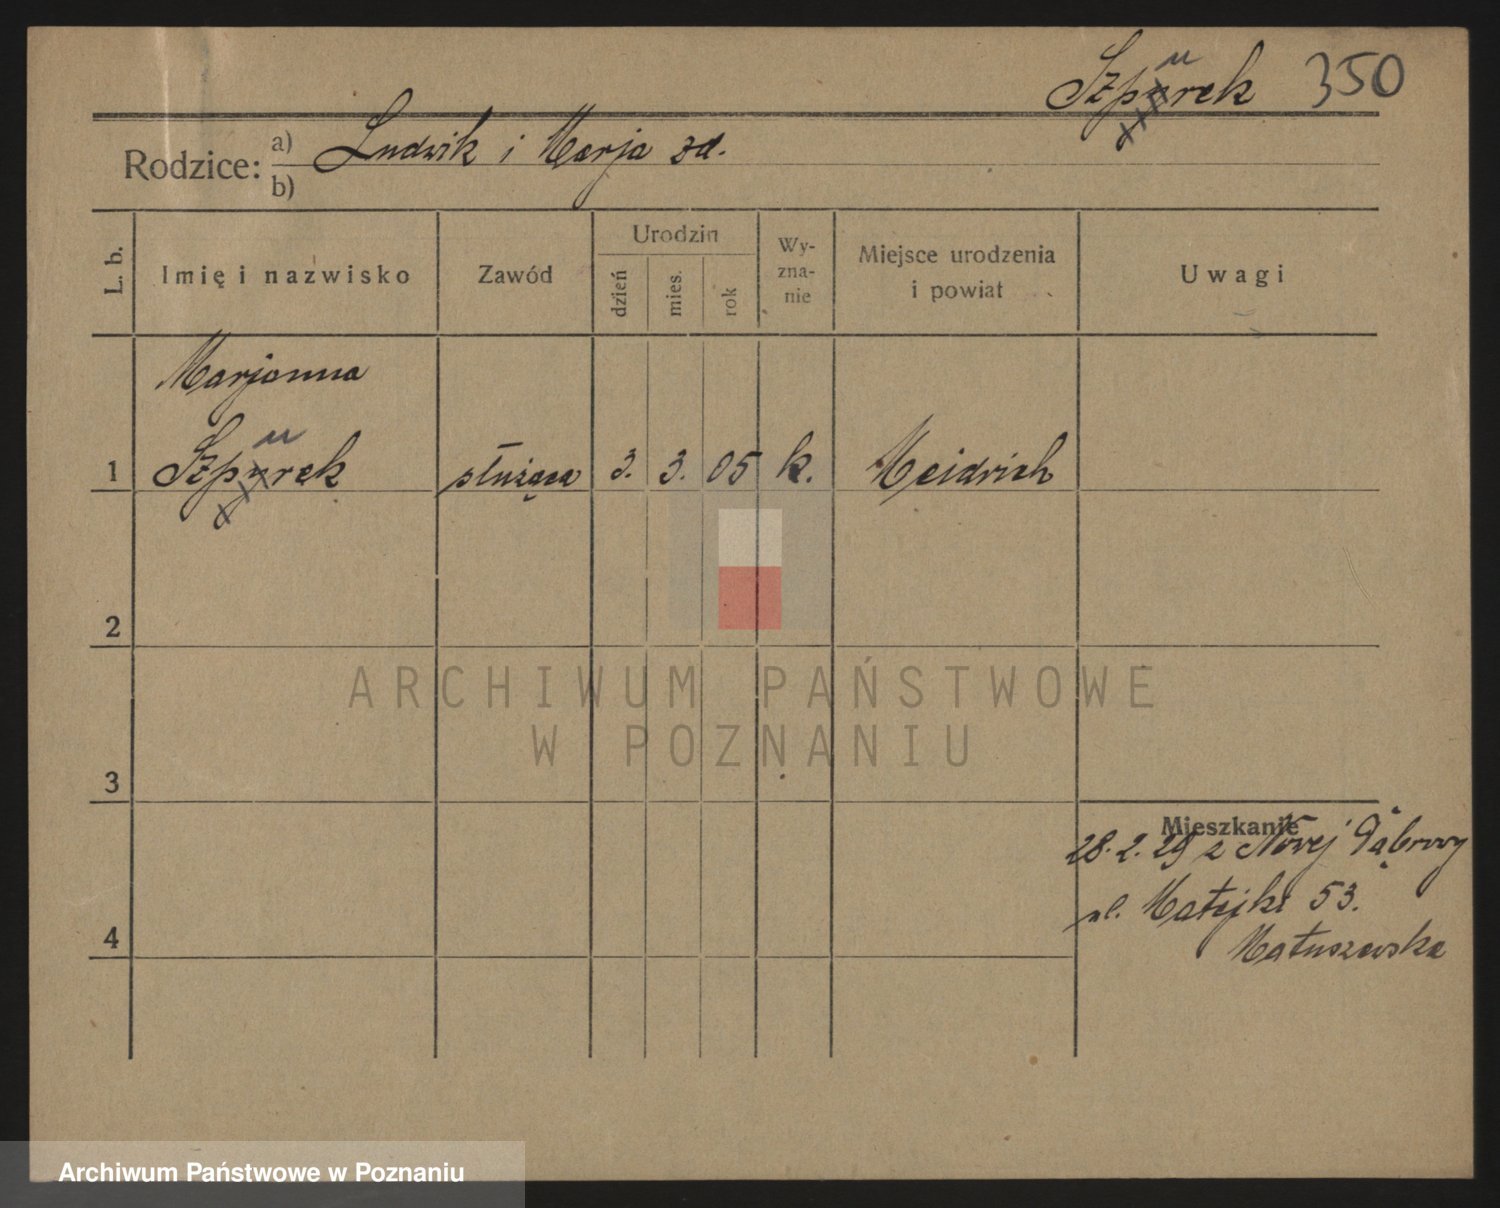 Szpurek 350
Rodzice: a) Ludwik i Marja zd.
b)
L. b.
Imię i nazwisko
Zawód
Urodzin
dzień
mies.
rok
Wy-
zna-
nie
Miejsce urodzenia
i powiat
Uwagi
Marjanna
1 Szpurek służąca 3. 3. 05 k. Meidrich
2
3
4
Mieszkanie
28. 2. 29 z Nowej Dąbrowy
ul. Matejki 53.
Matuszewska
ARCHIWUM PAŃSTWOWE
W POZNANIU
Archiwum Państwowe w Poznaniu